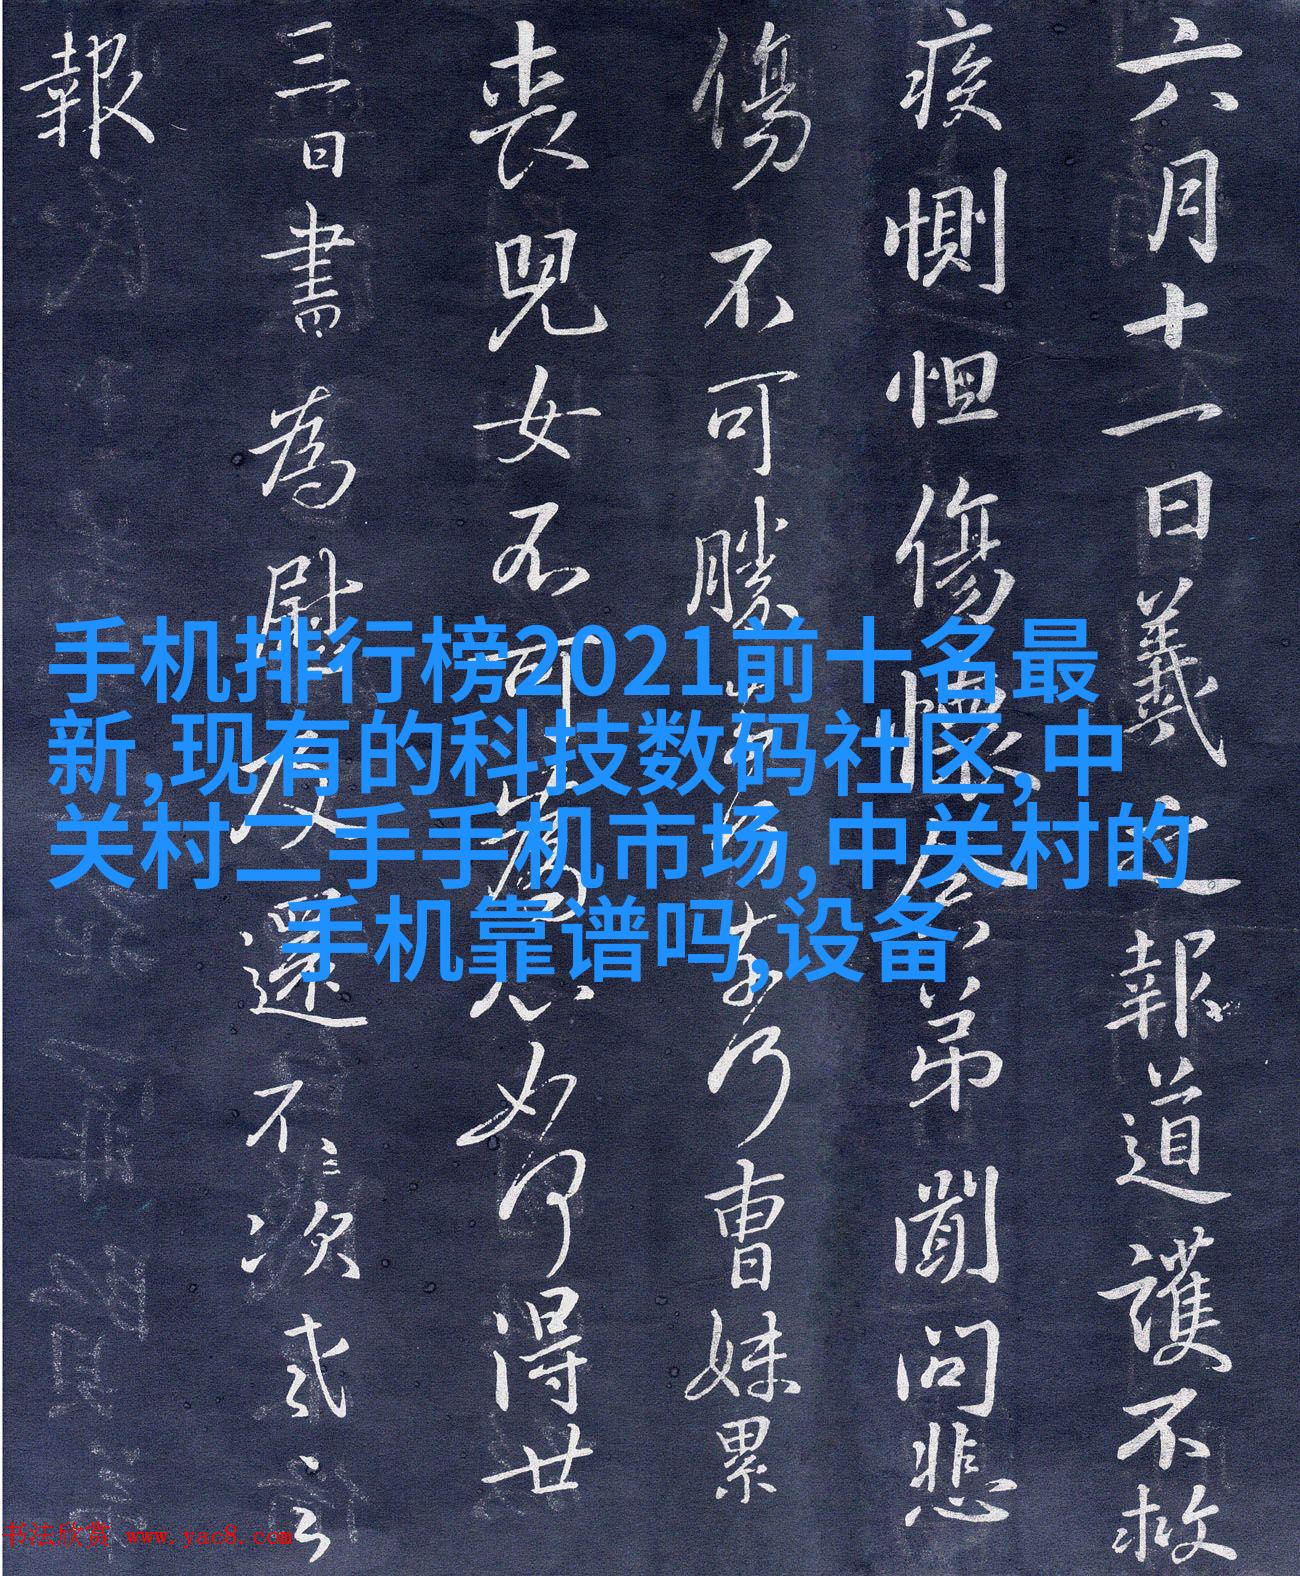 六月十一日羲之報道護不救
疾惻怛傷懷念弟聞問悲
傷不可勝
乃曹妹累
喪兒女不可為心如何得廿
三日書為慰及還不次。王羲之
報
手机排行榜2021前十名最
新,现有的科技数码社区,中
关村二手手机市场,中关村的
手机靠谱吗,设备
书法欣赏 www.yac8.com